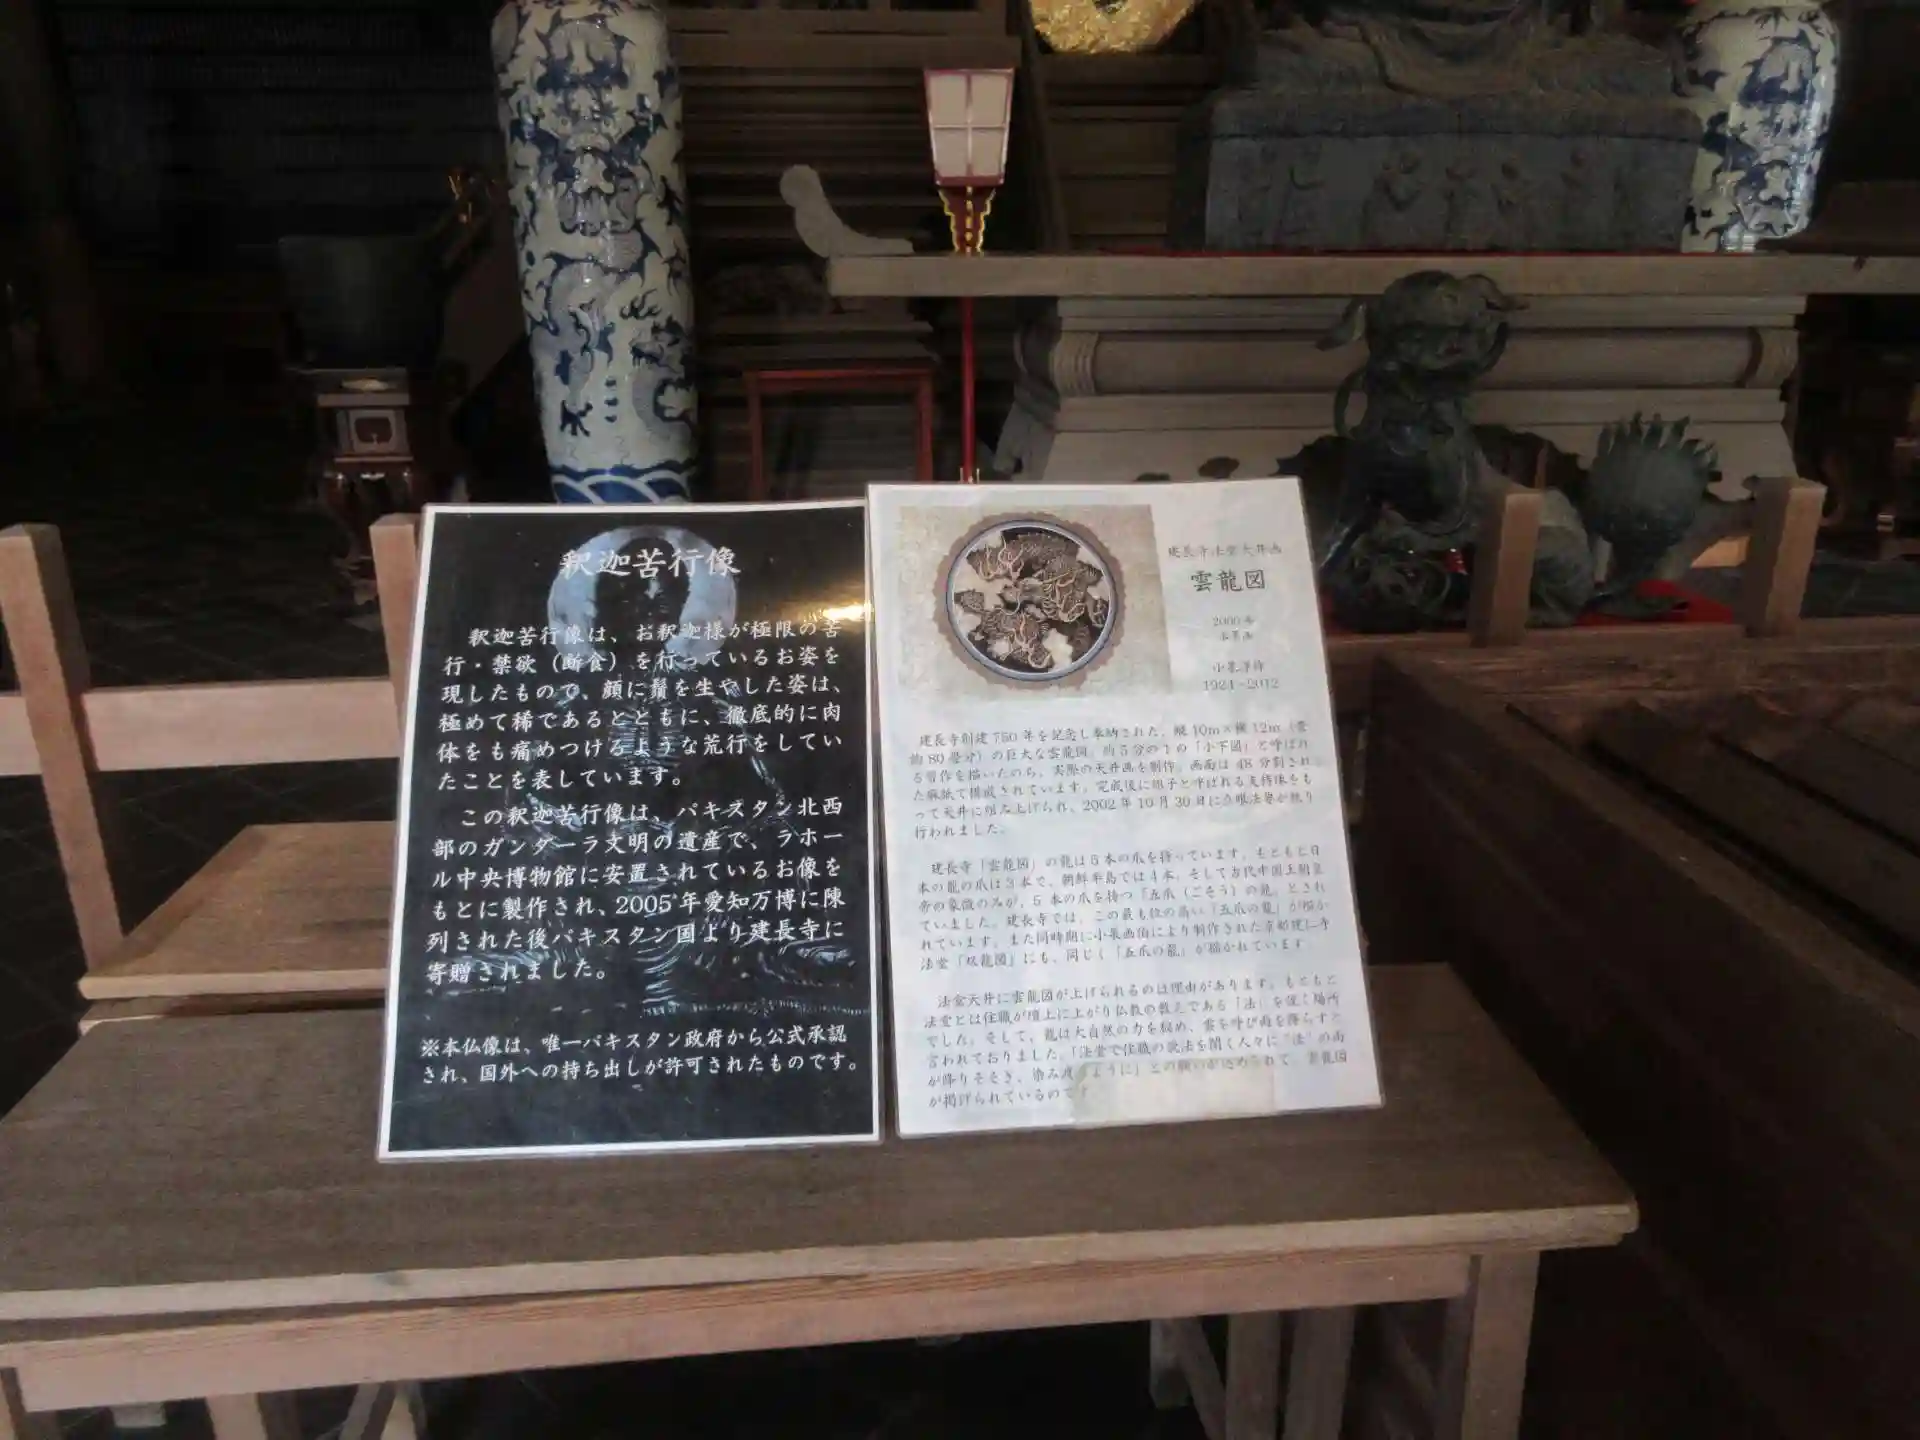 釈迦苦行像
釈迦苦行像は、お釈迦様が極限の苦
行・禁欲（断食）を行っているお姿を
現したもので、顔に鬚を生やした姿は、
極めて稀であるとともに、徹底的に肉
体をも痛めつけるような荒行をしてい
たことを表しています。
この釈迦苦行像は、パキスタン北西
部のガンダーラ文明の遺産で、ラホー
ル中央博物館に安置されているお像を
もとに製作され、2005年愛知万博に陳
列された後パキスタン国より建長寺に
寄贈されました。
※本仏像は、唯一パキスタン政府から公式承認
され、国外への持ち出しが許可されたものです。
建長寺法堂天井画
雲龍図
2000年
水墨画
小泉淳作
1924~2012
建長寺創建750年を記念し奉納された、縦10m×横12m（畳
約80畳分）の巨大な雲龍図。約5分の1の「小下図」と呼ばれ
る習作を描いたのち、実際の天井画を制作。画面は48分割され
た麻紙で構成されています。完成後に
って天井に組み上げられ、2002年10月30日に点眼法要が執り
行われました。
建長寺「雲龍図」の龍は5本の爪を持っています。もともと日
本の龍の爪は3本で、朝鮮半島では4本、そして古代中国王朝皇
帝の象徴のみが、5本の爪を持つ「五爪（ごそう）の龍」とされ
ていました。建長寺では、この最も位の高い「五爪の龍」が描か
れています。また同時期に小泉画伯により制作された京都建仁寺
法堂「双龍図」にも、同じく「五爪の龍」が描かれています。
法堂天井に雲龍図が上げられるのは理由があります。もともと
法堂とは住職が壇上に上がり仏教の教えである「法」を説く場所
でした。そして、龍は大自然の力を秘め、雲を呼び雨を降らすと
言われておりました。「法堂で住職の説法を聞く人々に“法”の雨
が降りそそぎ、染み渡るように」との願いが込められて、雲龍図
が掲げられているのです